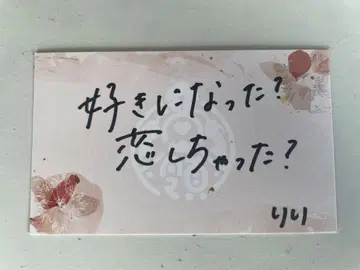 好きになった?
恋しちゃった?
りり